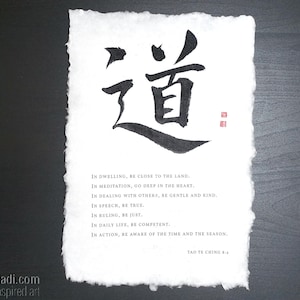 道
In dwelling, be close to the land.
In meditation, go deep in the heart.
In dealing with others, be gentle and kind.
In speech, be true.
In ruling, be just.
In daily life, be competent.
In action, be aware of the time and the season.
Tao Te Ching 8.3
adi.com
nspired art